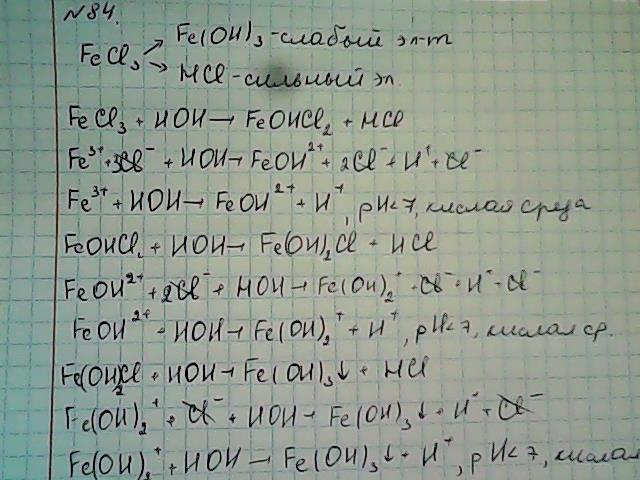 №84.
Fe(OH)₃ - слабый эл-т
FeCl₃
HCl - сильный эл.
FeCl₃ + HOH → FeOHCl₂ + HCl
Fe³⁺ + 3Cl⁻ + HOH → FeOH²⁺ + 2Cl⁻ + H⁺ + Cl⁻
Fe³⁺ + HOH → FeOH²⁺ + H⁺, pH<7, кислая среда
FeOHCl₂ + HOH → Fe(OH)₂Cl + HCl
FeOH²⁺ + 2Cl⁻ + HOH → Fe(OH)₂⁺ + Cl⁻ + H⁺ + Cl⁻
FeOH²⁺ + HOH → Fe(OH)₂⁺ + H⁺, pH<7, кислая ср.
Fe(OH)₂Cl + HOH → Fe(OH)₃↓ + HCl
Fe(OH)₂⁺ + Cl⁻ + HOH → Fe(OH)₃↓ + H⁺ + Cl⁻
Fe(OH)₂⁺ + HOH → Fe(OH)₃↓ + H⁺, pH<7, кислая